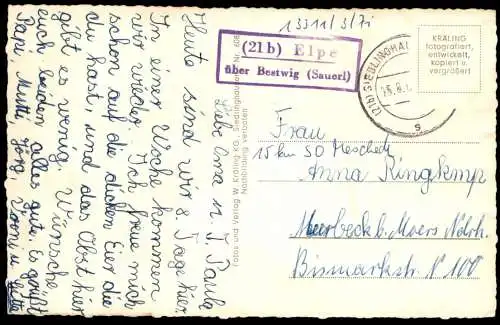 13311/3/7i
(21b) Elpe
über Bestwig (Sauerl)
KRÄLING
fotografiert,
entwickelt,
kopiert u.
vergrößert
(21b) SIEDLINGHAU
s
Fotos und Verlag W. Kräling KG., Siedlinghausen Nr. 608
Nachbildung verboten
Liebe Oma u. T. Paula
Heute sind wir 8 Tage hier.
In einer Woche kommen
wir wieder. Ich freue mich
schon auf die dicken Eier die
du hast, und das Obst hier
gibt es wenig. Wünsche
euch beiden alles gute. Es grüßt
Papi, Mutti, Jörg,
Frau
15 km SO Meschede
Anna Ringkamp
Meerbeck b. Moers Ndrh.
Bismarckstr. N 100